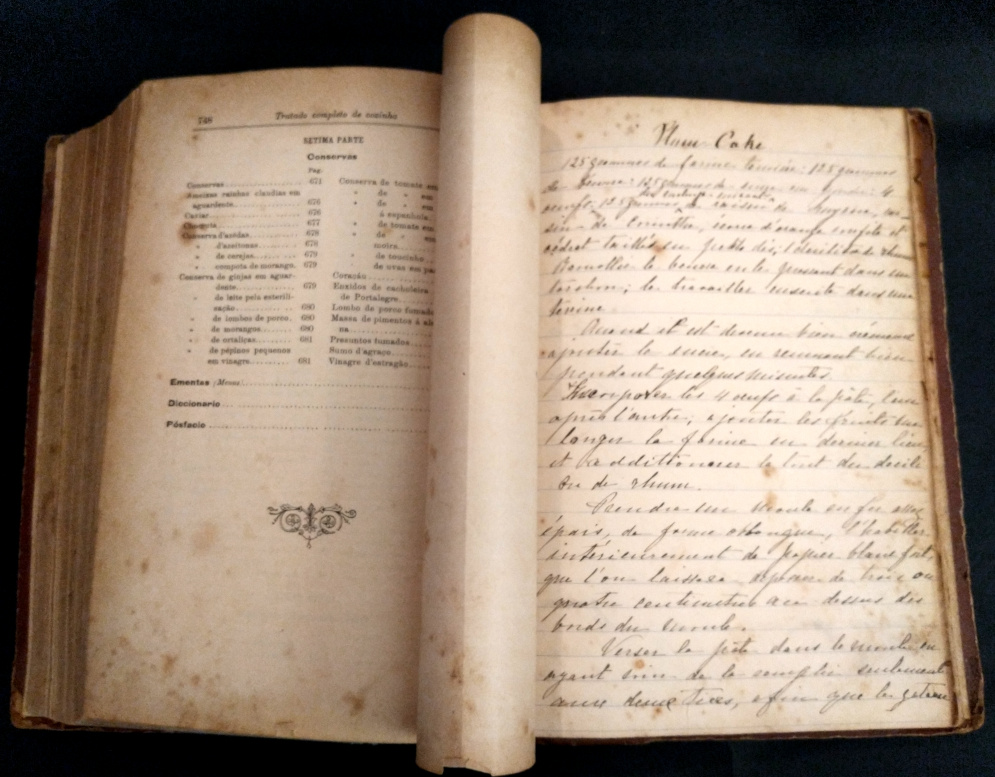 748
Tratado completo de cozinha
SETIMA PARTE
Conservas
Pag.
Conservas 671
Ameixas rainhas claudias em
aguardente 676
Caviar 676
677
Conserva d'azêdas 678
» d'azeitonas 678
» de cerejas 679
» compota de morango. 679
Conserva de ginjas em aguar-
dente 679
» de leite pela esterili-
sação 680
» de lombos de porco. 680
» de morangos 680
» de ortaliças 681
» de pepinos pequenos
em vinagre 681
Ementas (Menus)
Diccionario
Pósfacio
Conserva de tomate
» de »
» de »
á espanhola
» de tomate em
» de
moira
» de toucinho
» de uvas em
Coração
Enxidos de cacholeira
de Portalegre
Lombo de porco fumado
Massa de pimentos á
na
Presuntos fumados
Sumo d'agraço
Vinagre d'estragão
Plum-Cake
125 grammes de farine tamisée: 125 grammes
de beurre: 125 grammes de sucre en poudre: 4
oeufs, 125 grammes de raisin de Smyrne,
de Corinthe, écorce d'orange confite et
cédrat taillés en petits dés, 1 décilitre de rhum
Ramollir le beurre en le pressant dans un
torchon; le travailler ensuite dans une
terrine.
Quand il est devenu bien crémeux
ajouter le sucre, en remuant bien
pendant quelques minutes.
Incorporer les 4 oeufs à la pâte, l'un
après l'autre; ajouter les fruits
la farine en dernier lieu
et additionner le tout du décili
de rhum.
Prendre un moule en fer assez
épais, de forme oblongue, l'habiller
intérieurement de papier blanc fort,
que l'on laissera dépasser de trois ou
quatre centimètres au dessus des
bords du moule.
Verser la pâte dans le moule en
ayant soin de le remplir seulement
aux deux tiers, afin que le gateau